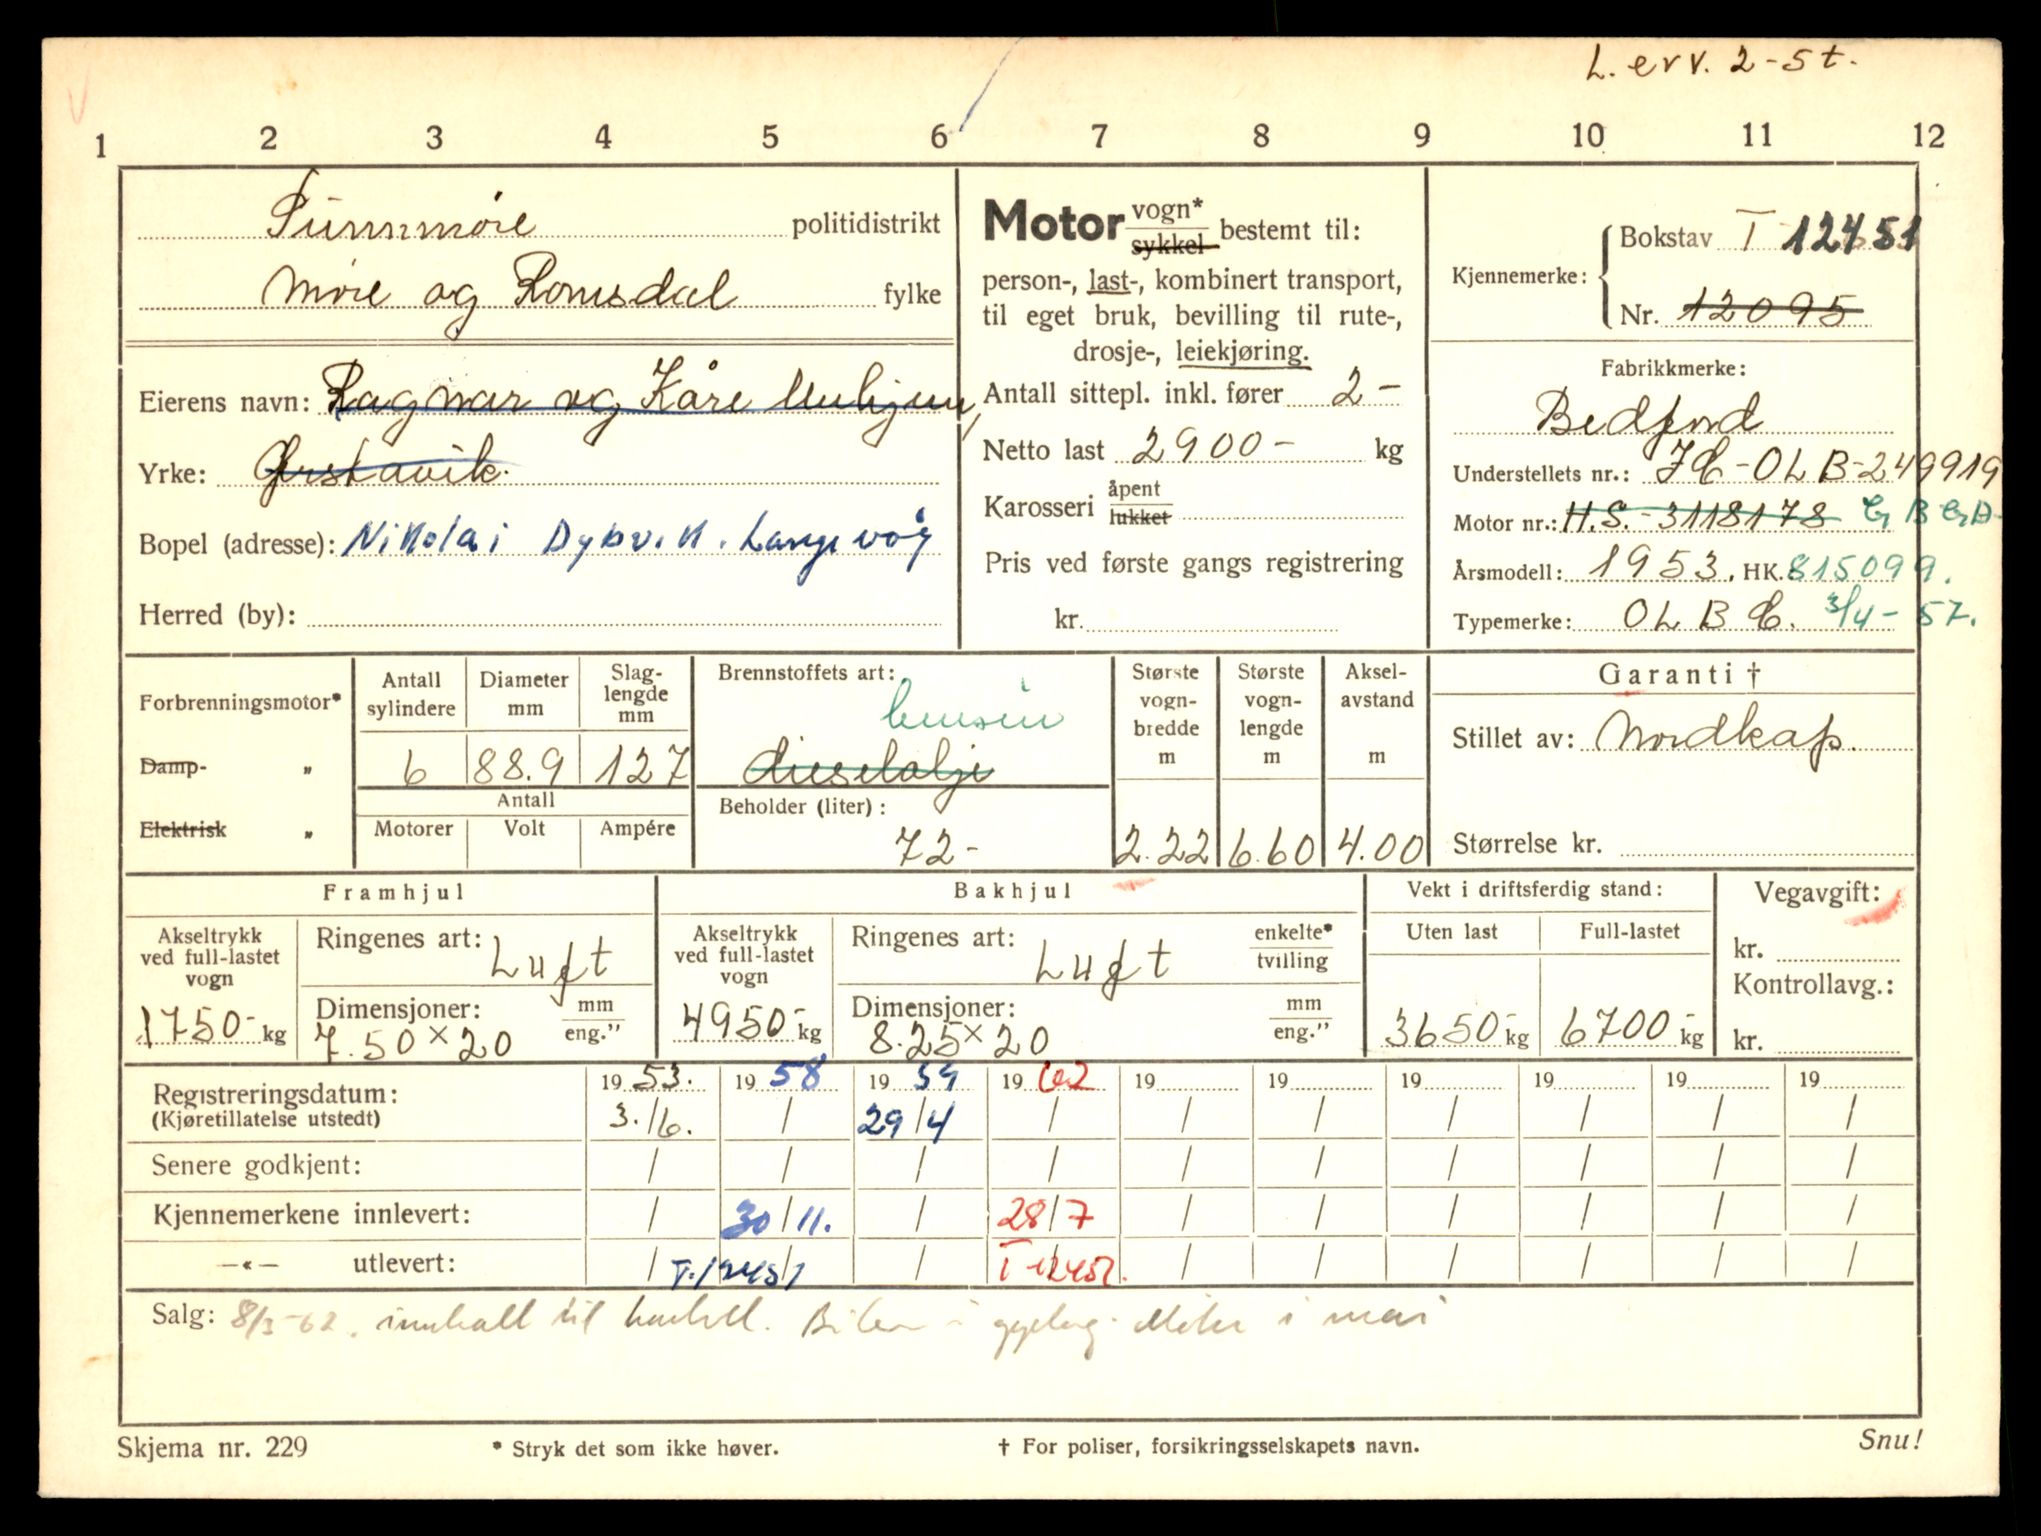 L. erv. 2-5 t.
1 2 3 4 5 6 7 8 9 10 11 12
Sunnmøre politidistrikt
Møre og Romsdal fylke
Eierens navn: Ragnar og Kåre
Yrke: Ørstavik.
Bopel (adresse): Nikolai Dybvik. Langevåg
Herred (by):
Motor vogn* sykkel bestemt til:
person-, last-, kombinert transport,
til eget bruk, bevilling til rute-,
drosje-, leiekjøring.
Antall sittepl. inkl. fører 2-
Netto last 2900- kg
Karosseri åpent lukket
Pris ved første gangs registrering
kr.
Kjennemerke: Bokstav T 12451
Nr. 12095
Fabrikkmerke:
Bedford
Understellets nr.: OLB-249919
Motor nr.: H.S.-3118178
Årsmodell: 1953. HK. 815099.
Typemerke: OLB 3/4-57.
Forbrenningsmotor*
Damp- „
Elektrisk „
Antall sylindere 6
Diameter mm 88.9
Slag-lengde mm 127
Antall
Motorer Volt Ampére
Brennstoffets art:
bensin
dieselolje
Beholder (liter):
72-
Største vogn-bredde m 2.22
Største vogn-lengde m 6.60
Aksel-avstand m 4.00
Garanti †
Stillet av: Nordkap.
Størrelse kr.
Framhjul
Akseltrykk ved full-lastet vogn
1750- kg
Ringenes art: Luft
Dimensjoner: mm eng."
7.50 × 20
Bakhjul
Akseltrykk ved full-lastet vogn
4950- kg
Ringenes art: Luft enkelte* tvilling
Dimensjoner: mm eng."
8.25 × 20
Vekt i driftsferdig stand:
Uten last Full-lastet
3650- kg 6700- kg
Vegavgift:
kr.
Kontrollavg.:
kr.
Registreringsdatum: 19 53. 19 58 19 59 19 62 19 19 19 19 19 19
(Kjøretillatelse utstedt) 3./6. / 29/4 / / / / / / /
Senere godkjent: / / / / / / / / / /
Kjennemerkene innlevert: / 30/11. / 28/7 / / / / / /
—«— utlevert: / T.12451 / T-12451. / / / / / /
Salg: 8/3-62. til i i
Skjema nr. 229
* Stryk det som ikke høver.
† For poliser, forsikringsselskapets navn.
Snu!